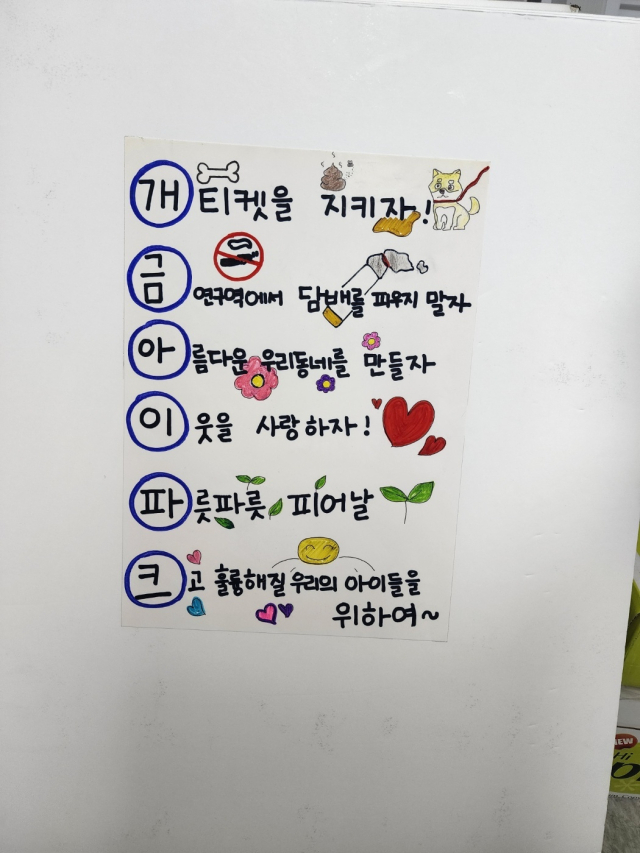 개티켓을 지키자!
금연구역에서 담배를 피우지 말자
아름다운 우리동네를 만들자
이웃을 사랑하자!
파릇파릇 피어날
크고 훌륭해질 우리의 아이들을
위하여~
NEW
Hi